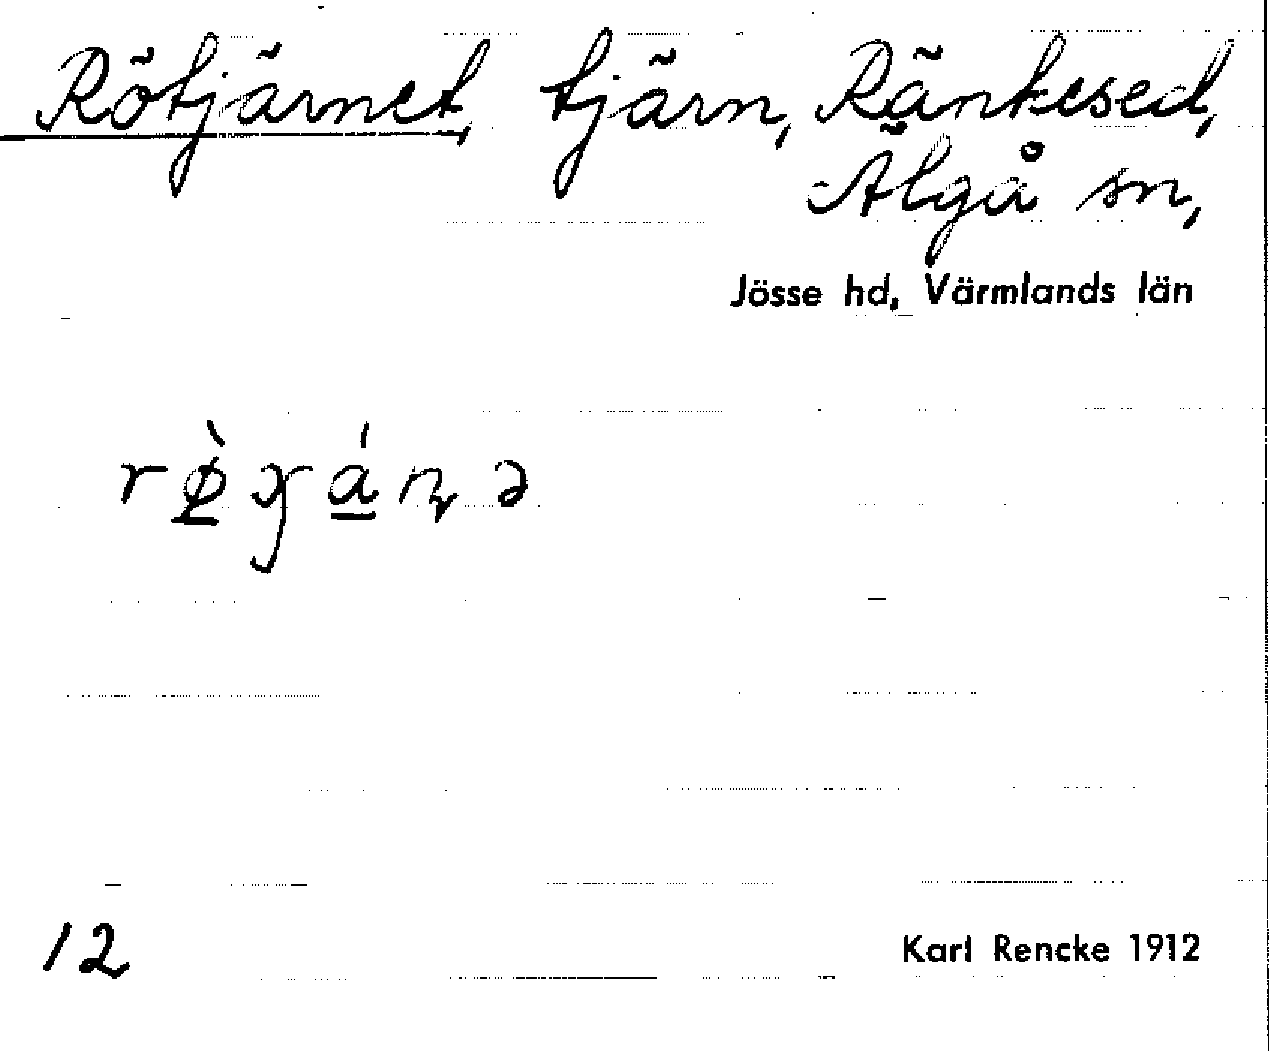 Rötjärnet, tjärn, Ränkesed,
Älgå sn,
Jösse hd, Värmlands län
12
Karl Rencke 1912